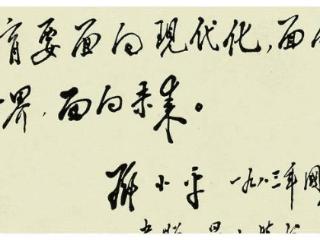 育要面向现代化,面
界,面向未来。
邓小平 一九八三年国